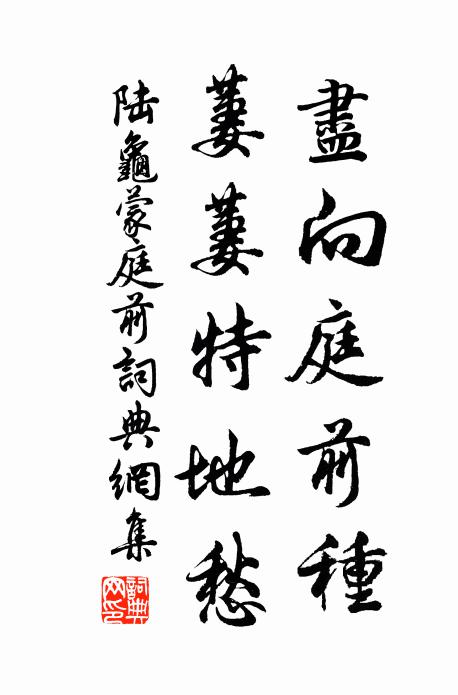 盡向庭前種
萋萋特地愁
陸龜蒙庭前詞典網集
詞典网印